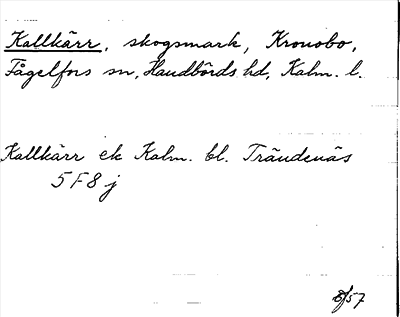 Kallkärr, skogsmark, Kronobo,
Fågelfors sn, Handbörds hd, Kalm. l.
Kallkärr ek Kalm. bl. Trändenäs
5 F 8 j
8/57